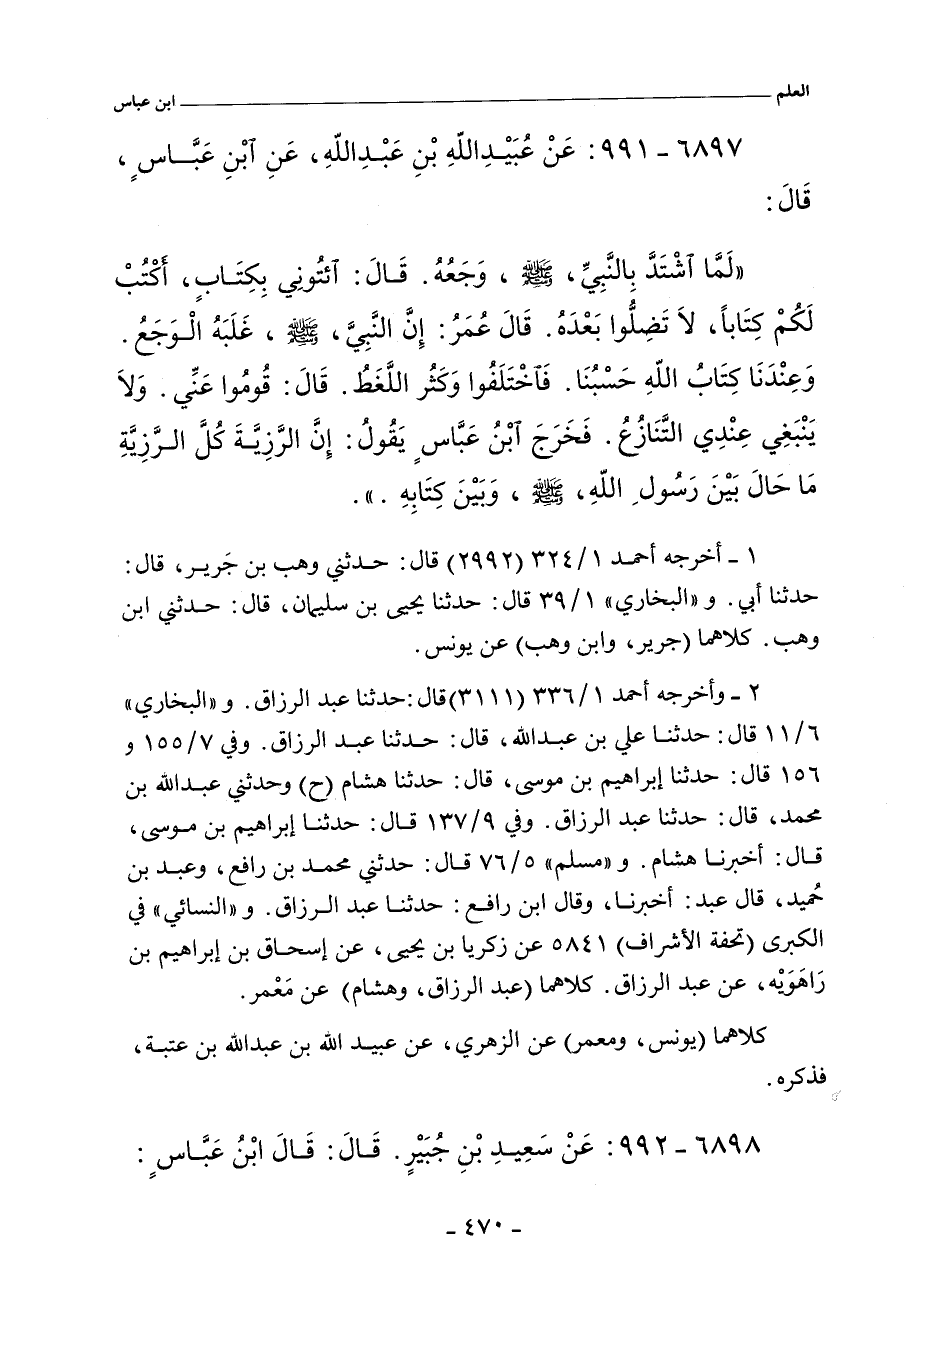 العلم ــــــــــــــــــــــــــــــــ ابن عباس
٦٨٩٧ ـ ٩٩١: عَنْ عُبَيْدِاللّهِ بْنِ عَبْدِاللّهِ، عَنِ ٱبْنِ عَبَّاسٍ،
قَالَ:
«لَمَّا ٱشْتَدَّ بِالنَّبِيِّ، ﷺ، وَجَعُهُ. قَالَ: ٱئْتُونِي بِكِتَابٍ، أَكْتُبْ
لَكُمْ كِتَاباً، لاَ تَضِلُّوا بَعْدَهُ. قَالَ عُمَرُ: إِنَّ النَّبِيَّ، ﷺ، غَلَبَهُ الْوَجَعُ.
وَعِنْدَنَا كِتَابُ اللّهِ حَسْبُنَا. فَٱخْتَلَفُوا وَكَثُر اللَّغَطُ. قَالَ: قُومُوا عَنِّي. وَلاَ
يَنْبَغِي عِنْدِي التَّنَازُعُ. فَخَرَجَ ٱبْنُ عَبَّاسٍ يَقُولُ: إِنَّ الرَّزِيَّةَ كُلَّ الرَّزِيَّةِ
مَا حَالَ بَيْنَ رَسُولِ اللّهِ، ﷺ، وَبَيْنَ كِتَابِهِ.».
١ ـ أخرجه أحمد ٣٢٤/١ (٢٩٩٢) قال: حدثني وهب بن جَرير، قال:
حدثنا أبي. و «البخاري» ٣٩/١ قال: حدثنا يحيى بن سليمان، قال: حدثني ابن
وهب. كلاهما (جرير، وابن وهب) عن يونس.
٢ ـ وأخرجه أحمد ٣٣٦/١ (٣١١١) قال: حدثنا عبد الرزاق. و «البخاري»
١١/٦ قال: حدثنا علي بن عبدالله، قال: حدثنا عبد الرزاق. وفي ١٥٥/٧ و
١٥٦ قال: حدثنا إبراهيم بن موسى، قال: حدثنا هشام (ح) وحدثني عبدالله بن
محمد، قال: حدثنا عبد الرزاق. وفي ١٣٧/٩ قال: حدثنا إبراهيم بن موسى،
قال: أخبرنا هشام. و «مسلم» ٧٦/٥ قال: حدثني محمد بن رافع، وعبد بن
حُميد، قال عبد: أخبرنا، وقال ابن رافع: حدثنا عبد الرزاق. و «النسائي» في
الكبرى (تحفة الأشراف) ٥٨٤١ عن زكريا بن يحيى، عن إسحاق بن إبراهيم بن
رَاهَوَيْه، عن عبد الرزاق. كلاهما (عبد الرزاق، وهشام) عن مَعْمر.
كلاهما (يونس، ومعمر) عن الزهري، عن عبيد الله بن عبدالله بن عتبة،
فذكره.
٦٨٩٨ ـ ٩٩٢: عَنْ سَعِيدِ بْنِ جُبَيْرٍ. قَالَ: قَالَ ابْنُ عَبَّاسٍ:
ـ ٤٧٠ ـ